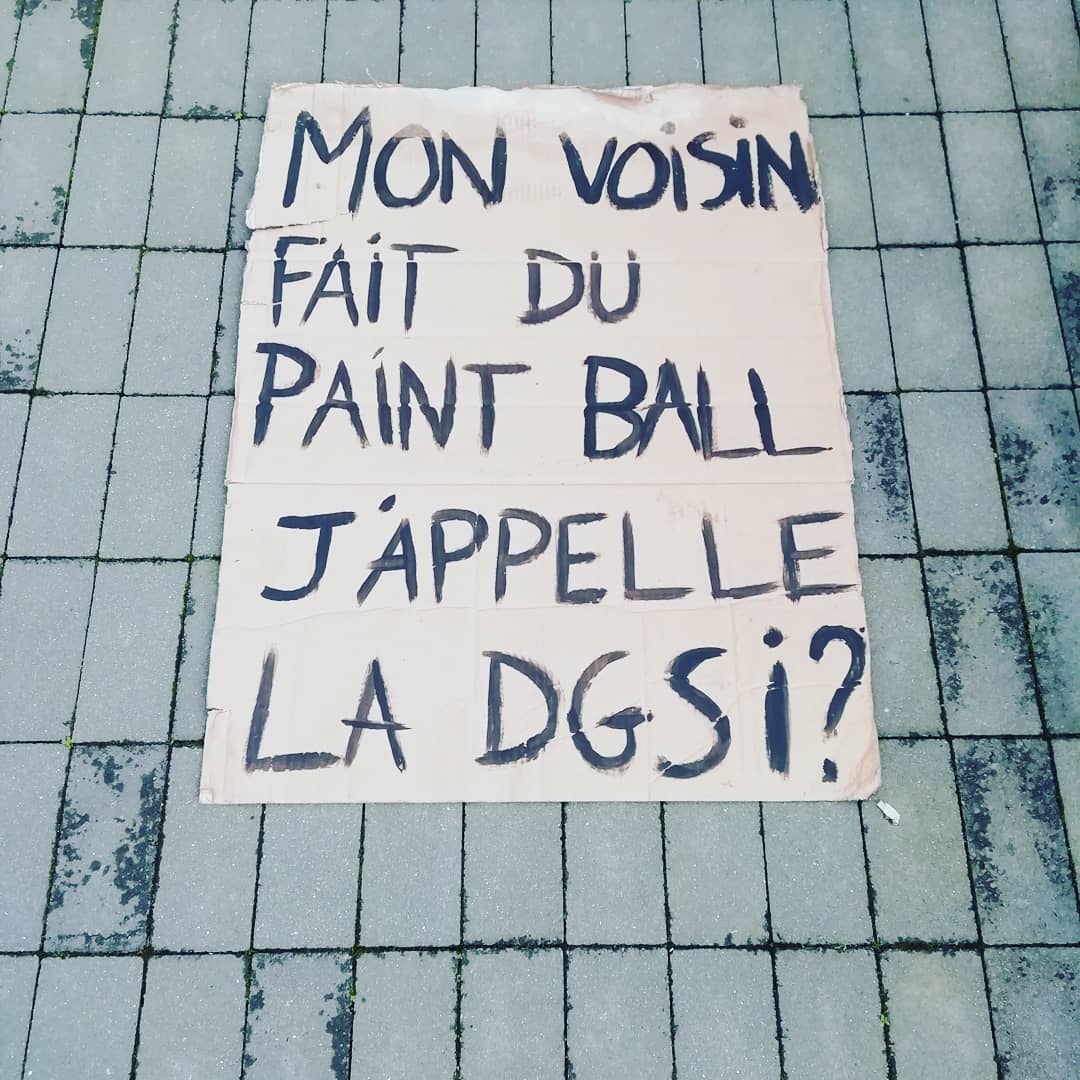 MON VOISIN
FAIT DU
PAINT BALL
J'APPELLE
LA DGSI?